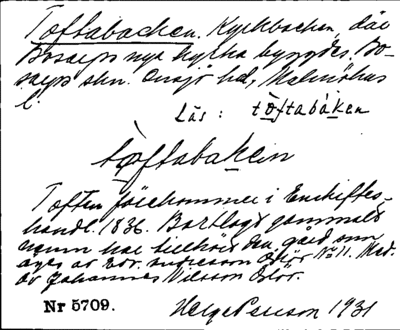 Toftabacken. Kyrkbacken, där
Bosarps nya kyrka byggdes. Bo-
sarps skn. Onsjö hd, Malmöhus
l.
Läs: tòftabáken
tòftabaken
Toften förekommer i Enskiftes-
handl. 1836. Bortlagt gammalt
namn har tillhört den gård som
äges av Edv. Andersson Eslöv No 11. Med.
av Johannes Nilsson Eslöv.
Nr 5709. Helge Persson 1931